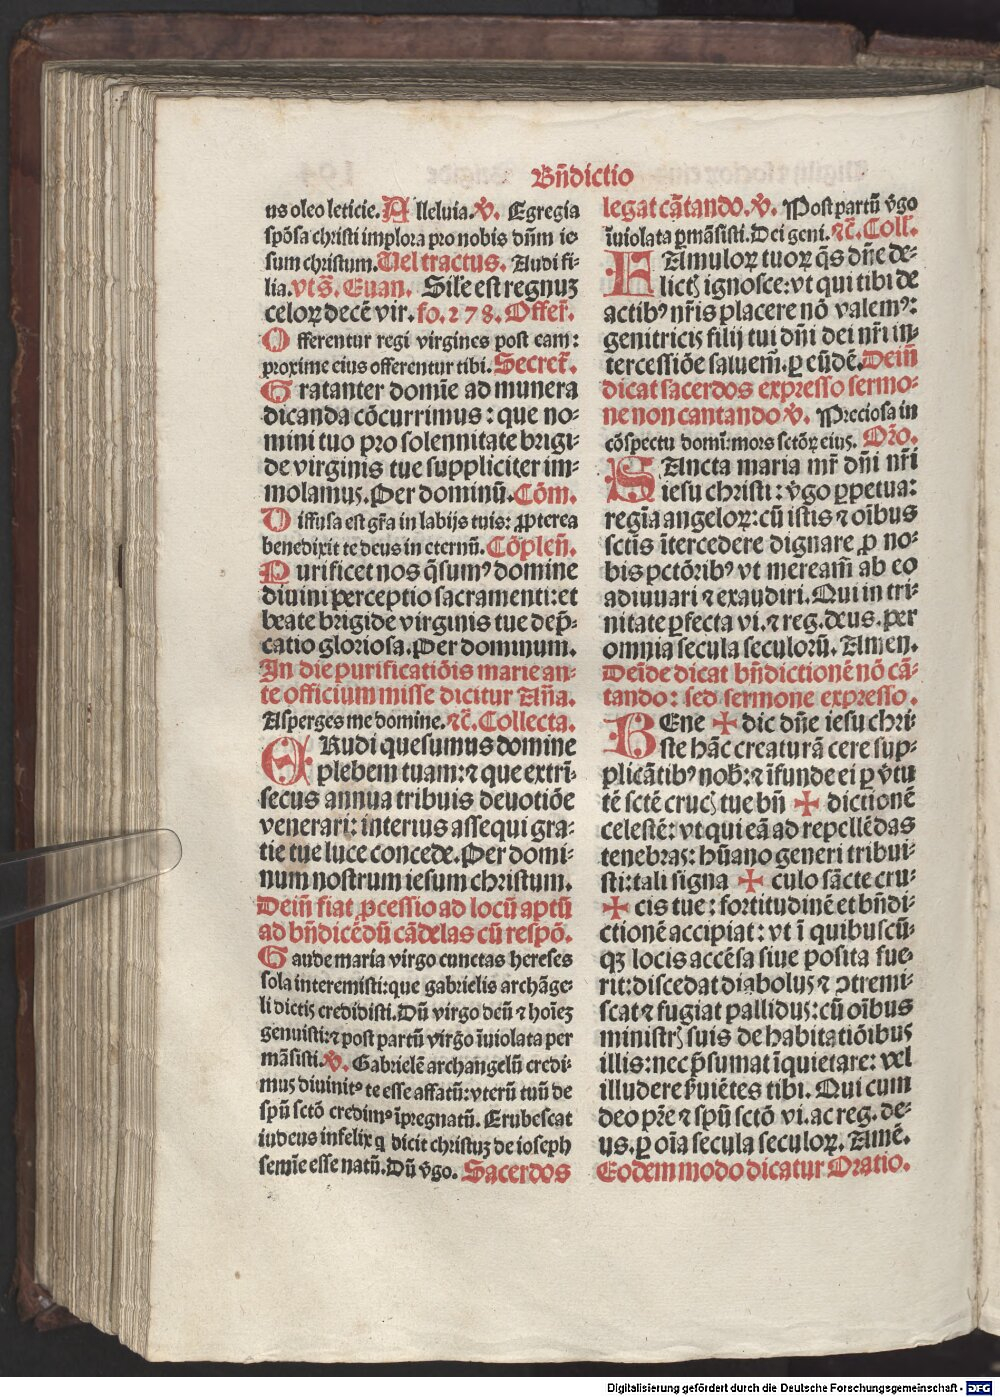 Bn̄dictio
us oleo leticie. Alleluia. ℣. Egregia
spōsa christi implora pro nobis dn̄m ie-
sum christum. Uel tractus. Audi fi-
lia. vts̄. Euan. Sile est regnuꝫ
celoꝝ decē vir. fo. 278. Offer̄.
Offerentur regi virgines post eam:
proxime eius offerentur tibi. Secret̄.
Gratanter domīe ad munera
dicanda cōcurrimus: que no-
mini tuo pro solennitate brigi-
de virginis tue suppliciter im-
molamuꝫ. Per dominū. Cōm.
Diffusa est gr̄a in labijs tuis: ꝓpterea
benedixit te deus in eternū. Cōplen̄.
Purificet nos q̄sumꝰ domine
diuini perceptio sacramenti: et
beate brigide virginis tue dep̄-
catio gloriosa. Per dominum.
In die purificatiōis marie an-
te officium misse dicitur An̄a.
Asperges me domine. ⁊c̄. Collecta.
ERudi quesumus domine
plebem tuam: ⁊ que extrī-
secus annua tribuis deuotiōe
venerari: interius assequi gra-
tie tue luce concede. Per domi-
num nostrum iesum christum.
Dein̄ fiat ꝓcessio ad locū aptū
ad bn̄dicēdū cādelas cū respō.
Gaude maria virgo cunctas hereses
sola interemisti: que gabrielis archāge-
li dictis credidisti. Dū virgo deū ⁊ hoīeꝫ
genuisti: ⁊ post partū virgo īuiolata per
māsisti. ℣. Gabrielē archangelū credi-
mus diuinitꝰ te esse affatū: vterū tuū de
spū sctō credimꝰ īpregnatū. Erubescat
iudeus infelix q dicit christuꝫ de ioseph
semīe esse natū. Dū v̄go. Sacerdos
legat cātando. ℣. Post partū v̄go
īuiolata ꝑmāsisti. Dei geni. ⁊c̄. Coll̄.
FAmuloꝝ tuoꝝ q̄s dn̄e de-
lictꝭ ignosce: vt qui tibi de
actibꝰ nr̄is placere nō valemꝰ:
genitricis filij tui dn̄i dei nr̄i in-
tercessiōe saluem̄. ꝑ eūdē. Dein̄
dicat sacerdos expresso sermo-
ne non cantando ℣. Preciosa in
cōspectu domi: mors sctōꝝ eiuꝫ. Or̄o.
SAncta maria mr̄ dn̄i nr̄i
iesu christi: v̄go ꝑpetua:
regīa angeloꝝ: cū istis ⁊ oībus
sctīs ītercedere dignare ꝓ no-
bis pctōribꝰ vt meream̄ ab eo
adiuuari ⁊ exaudiri. Qui in tri-
nitate ꝑfecta vi. ⁊ reg. deus. per
omnia secula seculorū. Amen.
Deīde dicat bn̄dictionē nō cā-
tando: sed sermone expresso.
BEne ✠ dic dn̄e iesu chri-
ste hāc creaturā cere sup-
plicātibꝰ nob̄: ⁊ īfunde ei ꝑ v̄tu
tē sctē crucꝭ tue bn̄ ✠ dictionē
celestē: vt qui eā ad repellēdas
tenebras: hūano generi tribui-
sti: tali signa ✠ culo sācte cru-
✠ cis tue: fortitudinē et bn̄di-
ctionē accipiat: vt ī quibuscū-
qꝫ locis accēsa siue posita fue-
rit: discedat diabolus ⁊ ꝯtremi-
scat ⁊ fugiat pallidus: cū oībus
ministrꝭ suis de habitatiōibus
illis: nec p̄sumat īquietare: vel
illudere ẜuiētes tibi. Qui cum
deo pr̄e ⁊ spū sctō vi. ac reg. de-
us. ꝑ oīa secula seculoꝝ. Amē.
Eodem modo dicatur Oratio.
Digitalisierung gefördert durch die Deutsche Forschungsgemeinschaft - DFG